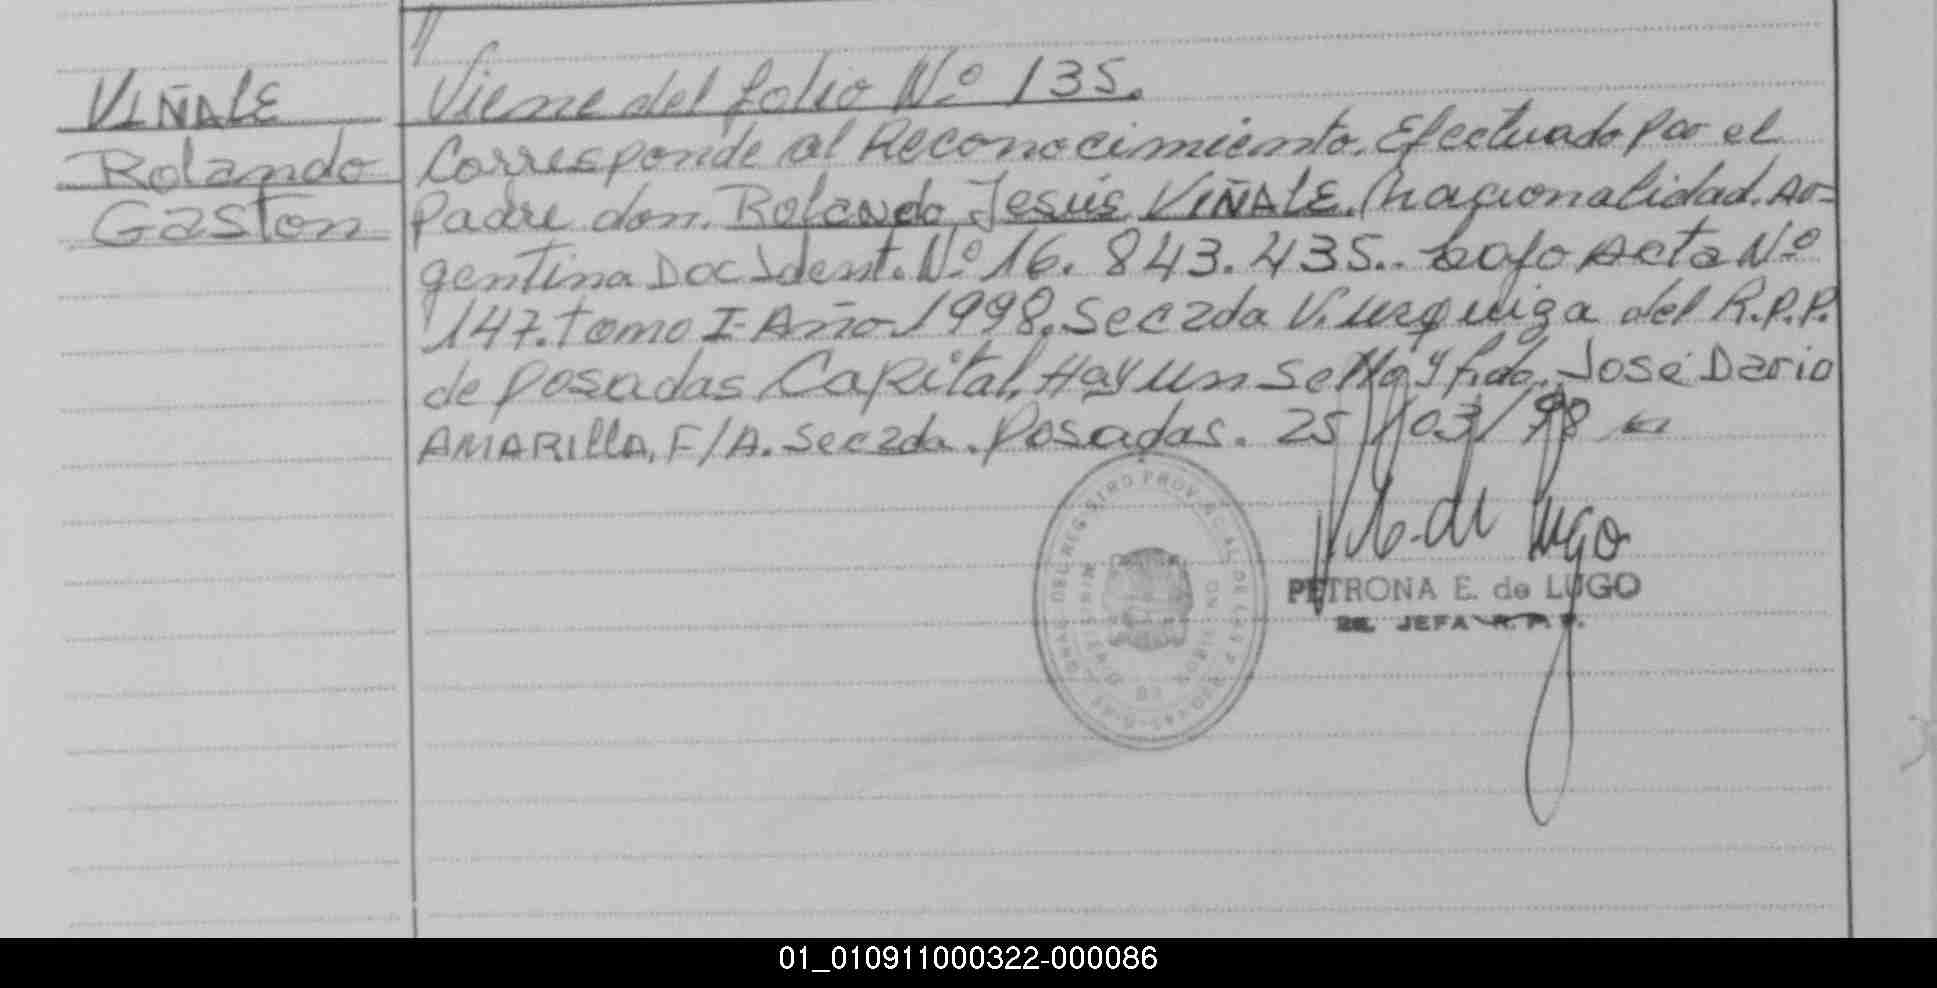 VIÑALE
Rolando
Gaston
Viene del folio Nº 135.
Corresponde al Reconocimiento. Efectuado por el
Padre don. Rolando Jesús VIÑALE. Nacionalidad. Ar=
gentina Doc Ident. Nº 16.843.435.. bajo Acta Nº
147. tomo I- Año 1998. Sec 2da V. Urquiza del R.P.P.
de Posadas Capital. Hay un sello y fdo. José Dario
AMARILLA, F/A. Sec 2da. Posadas. 25/03/98
de Lugo
PETRONA E. de LUGO
JEFA R.P.P.
01_010911000322-000086